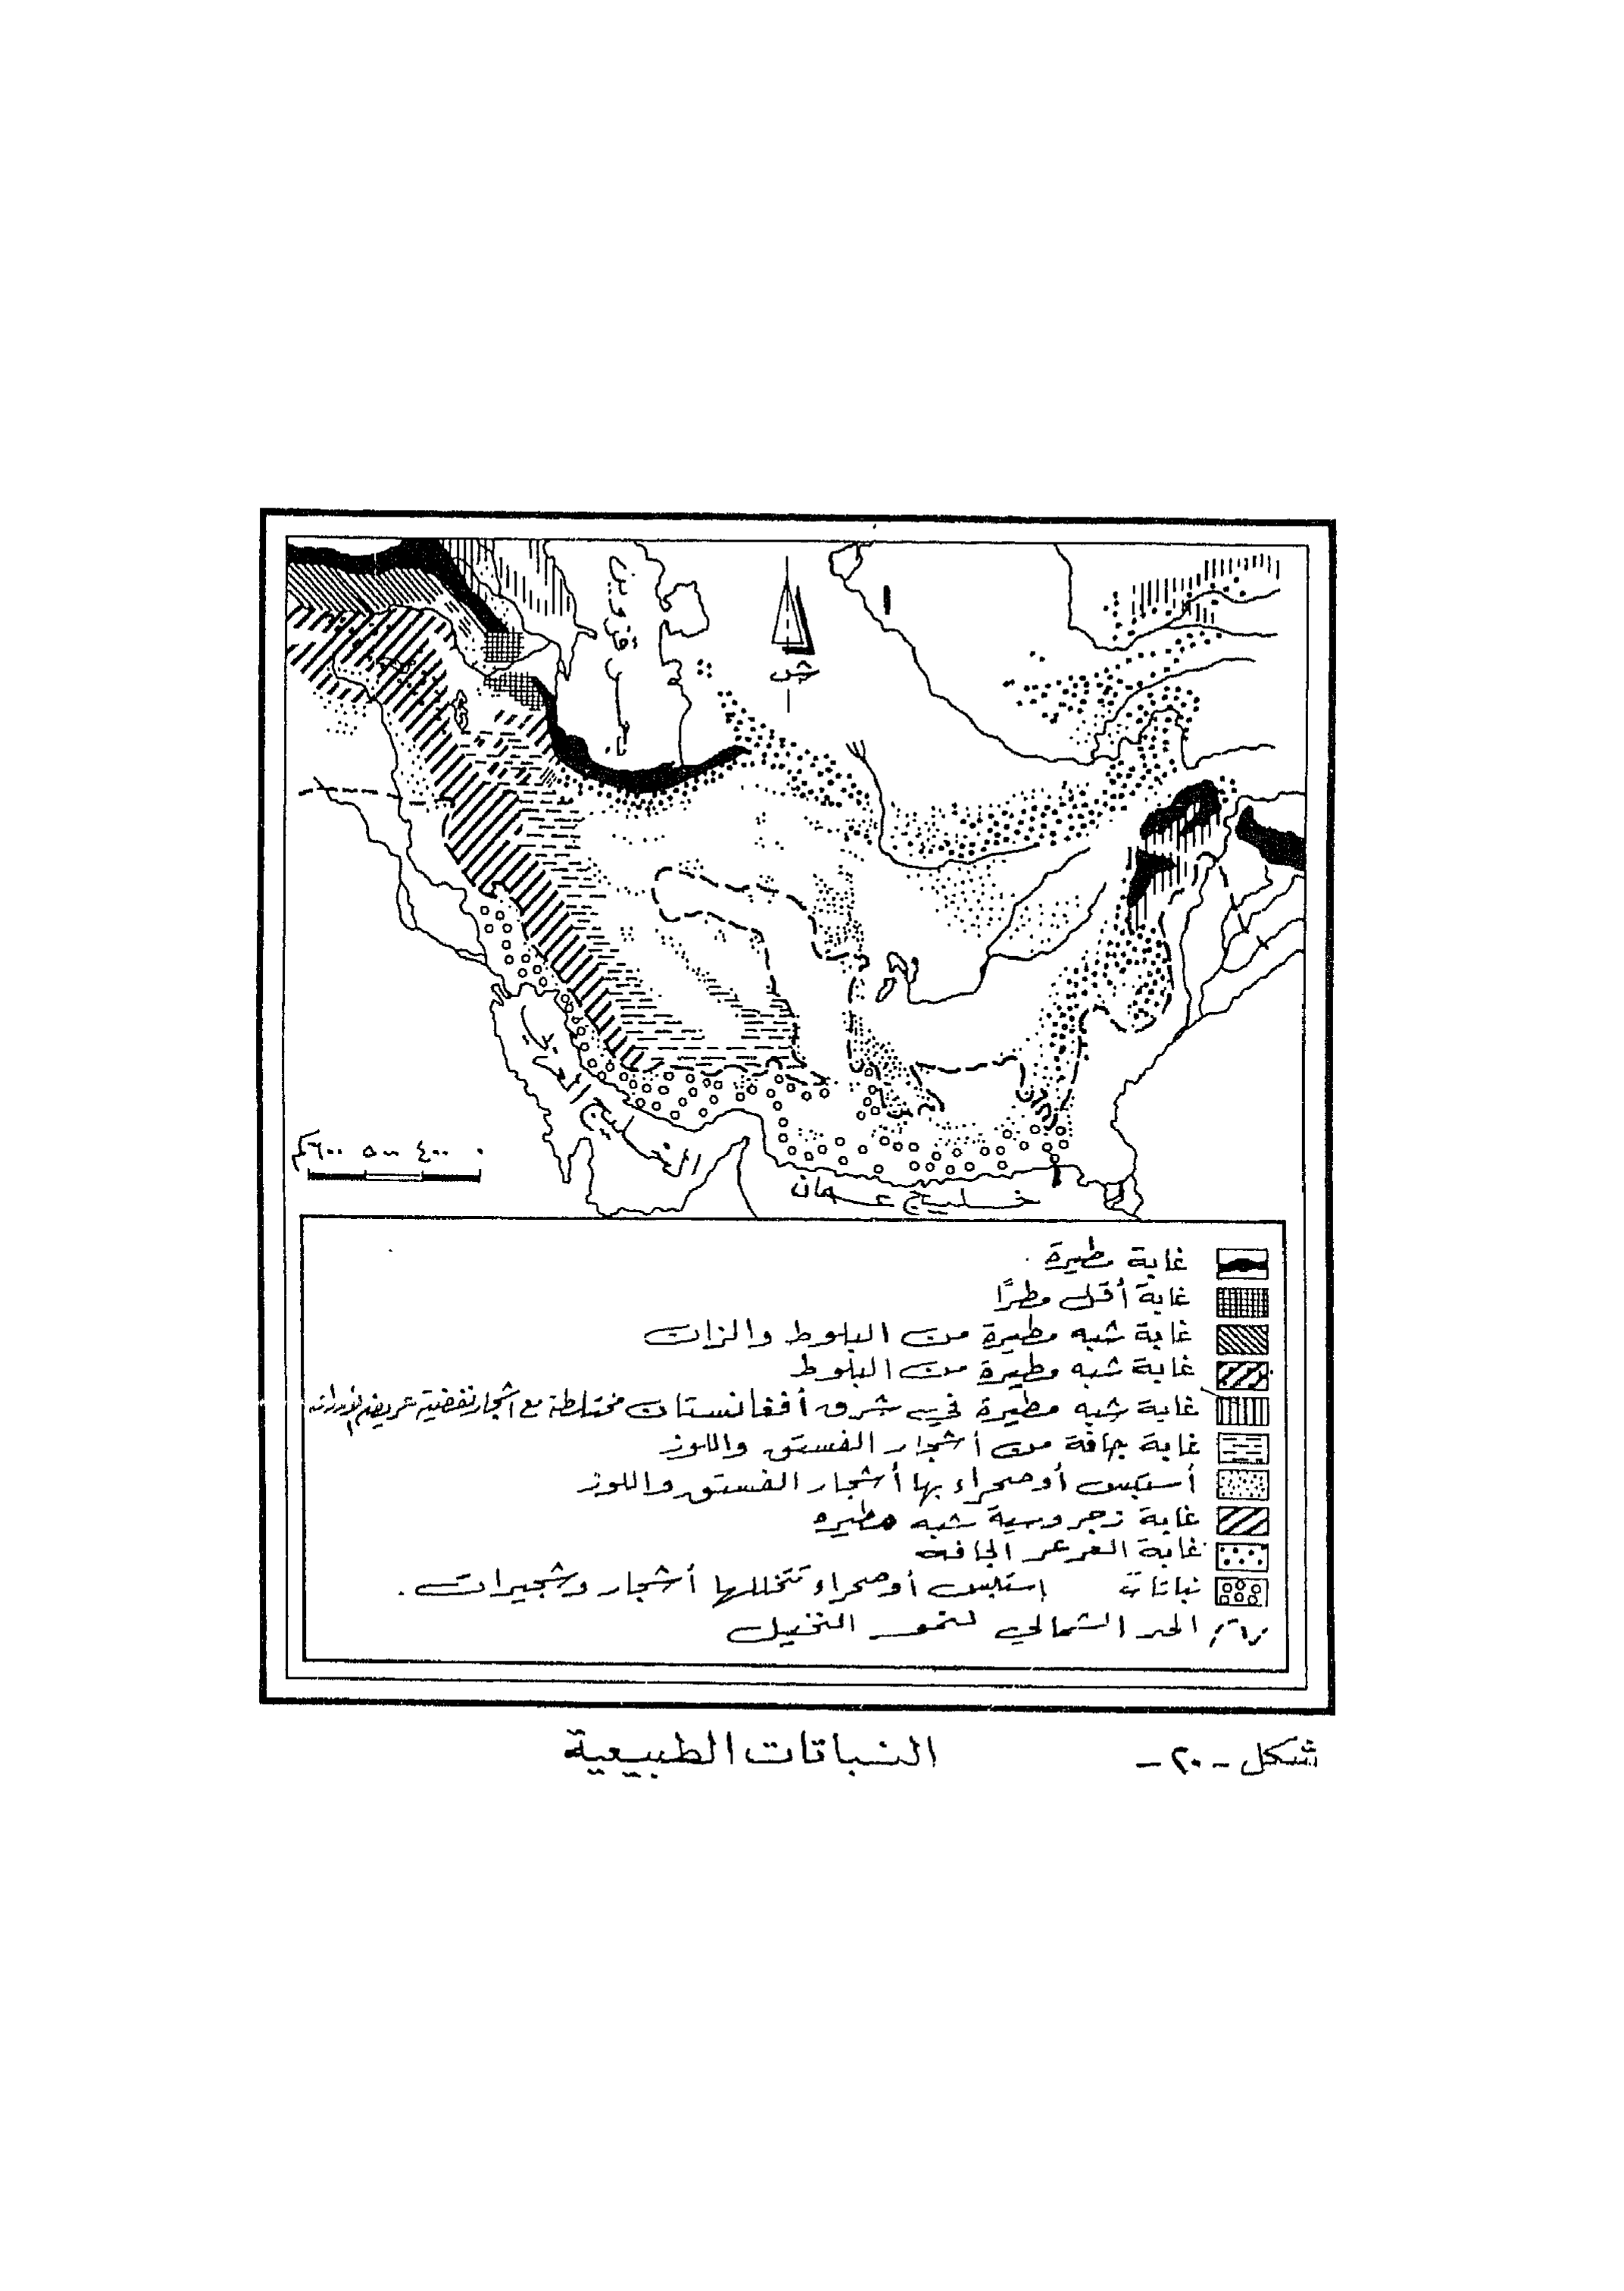 بحر قزوين
ش
الخليج العربي
خليج عمان
٠ ٤٠٠ ٥٠٠ ٦٠٠كم
غابة مطيرة
غابة أقل مطرًا
غابة شبه مطيرة من البلوط والزان
غابة شبه مطيرة من البلوط
غابة شبه مطيرة في شرق أفغانستان مختلطة مع أشجار نفضية عريضة الأوراق
غابة جافة من أشجار الفستق واللوز
أستبس أو صحراء بها أشجار الفستق واللوز
غابة زجروسية شبه مطيره
غابة العرعر الجافه
نباتات إستبس أو صحراء تتخللها أشجار وشجيرات .
الحد الشمالي لنمو النخيل
شكل - ٢٠ - النباتات الطبيعية